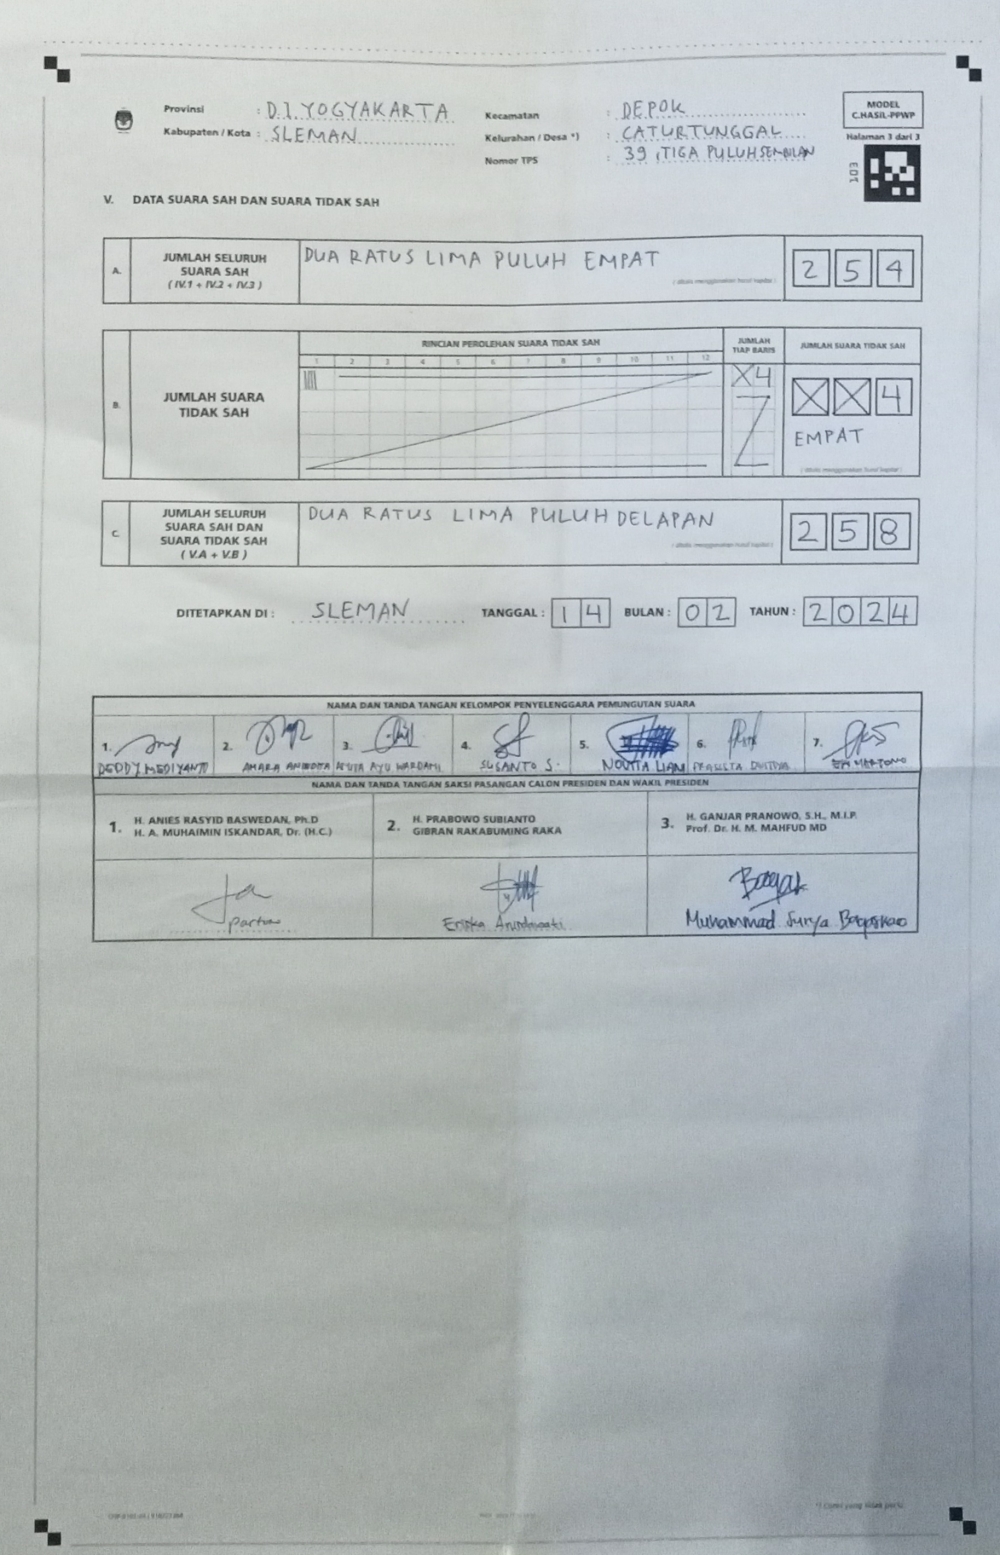 Provinsi : D.I. YOGYAKARTA
Kabupaten / Kota : SLEMAN
Kecamatan : DEPOK
Kelurahan / Desa *) : CATURTUNGGAL
Nomor TPS : 39, TIGA PULUH SEMBILAN
MODEL
C.HASIL-PPWP
Halaman 3 dari 3
ED1
V. DATA SUARA SAH DAN SUARA TIDAK SAH
A. JUMLAH SELURUH
SUARA SAH
( IV.1 + IV.2 + IV.3 )
DUA RATUS LIMA PULUH EMPAT
(ditulis menggunakan huruf kapital)
2 5 4
B. JUMLAH SUARA
TIDAK SAH
RINCIAN PEROLEHAN SUARA TIDAK SAH
1 2 3 4 5 6 7 8 9 10 11 12
JUMLAH
TIAP BARIS
X4
JUMLAH SUARA TIDAK SAH
X X 4
EMPAT
(ditulis menggunakan huruf kapital)
C. JUMLAH SELURUH
SUARA SAH DAN
SUARA TIDAK SAH
( V.A + V.B )
DUA RATUS LIMA PULUH DELAPAN
(ditulis menggunakan huruf kapital)
2 5 8
DITETAPKAN DI : SLEMAN TANGGAL : 14 BULAN : 02 TAHUN : 2024
NAMA DAN TANDA TANGAN KELOMPOK PENYELENGGARA PEMUNGUTAN SUARA
1. 2. 3. 4. 5. 6. 7.
DEDDY MEDIYANTO AMARA AYU WARDANI SUSANTO S. NOVITA LIANI
NAMA DAN TANDA TANGAN SAKSI PASANGAN CALON PRESIDEN DAN WAKIL PRESIDEN
1. H. ANIES RASYID BASWEDAN, Ph.D
H. A. MUHAIMIN ISKANDAR, Dr. (H.C.)
2. H. PRABOWO SUBIANTO
GIBRAN RAKABUMING RAKA
3. H. GANJAR PRANOWO, S.H., M.I.P.
Prof. Dr. H. M. MAHFUD MD
Muhammad Surya
*) Coret yang tidak perlu